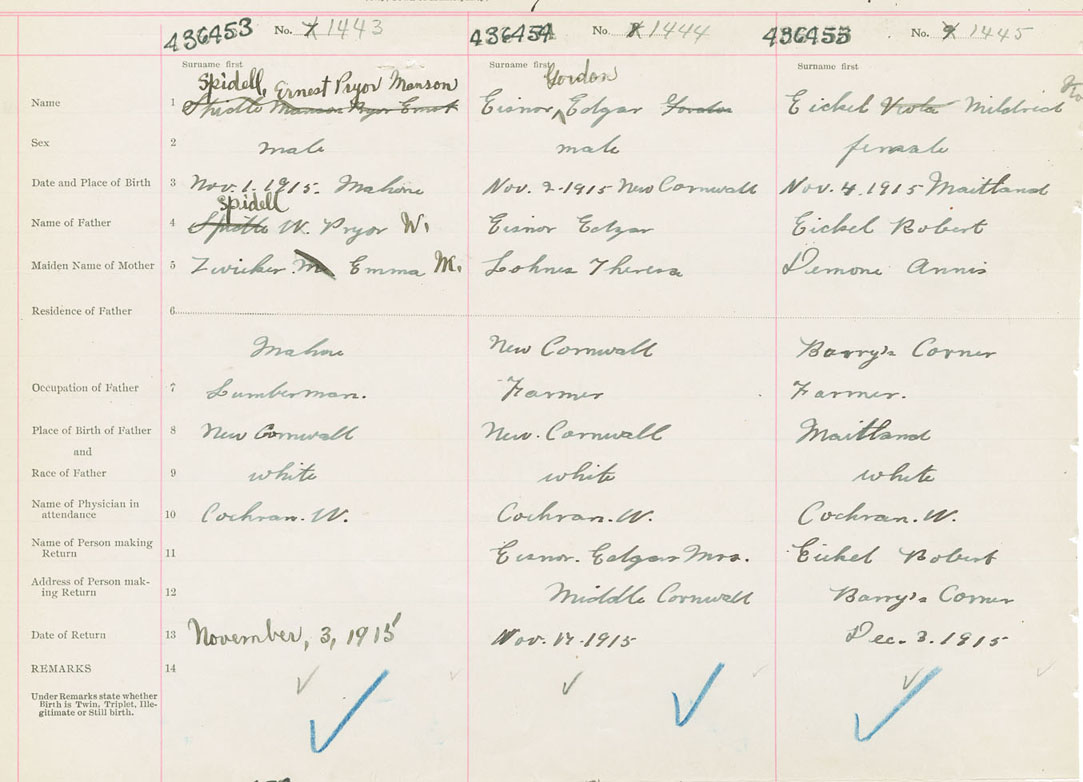 436453 No. 1443 436454 No. 1444 436455 No. 1445
Surname first Surname first Surname first
Spidell, Ernest Pryor Manson Gordon
Name 1 Manson Pryor Ernst Eisnor, Edgar Gordon Eickel Viola Mildried
Sex 2 male male female
Date and Place of Birth 3 Nov. 1. 1915. Mahone Nov. 2. 1915 New Cornwall Nov. 4. 1915 Maitland
Spidell
Name of Father 4 W. Pryor W. Eisnor Edgar Eickel Robert
Maiden Name of Mother 5 Zwicker Emma M. Lohnes Theresa Demone Annis
Residence of Father 6
Mahone New Cornwall Barry's Corner
Occupation of Father 7 Lumberman. Farmer Farmer.
Place of Birth of Father 8 New Cornwall New. Cornwall Maitland
and
Race of Father 9 white white white
Name of Physician in
attendance 10 Cochran. W. Cochran. W. Cochran. W.
Name of Person making
Return 11 Eisnor. Edgar Mrs. Eickel Robert
Address of Person mak-
ing Return 12 Middle Cornwall Barry's Corner
Date of Return 13 November, 3, 1915 Nov. 17. 1915 Dec. 3. 1915
REMARKS 14
Under Remarks state whether
Birth is Twin, Triplet, Ille-
gitimate or Still birth.